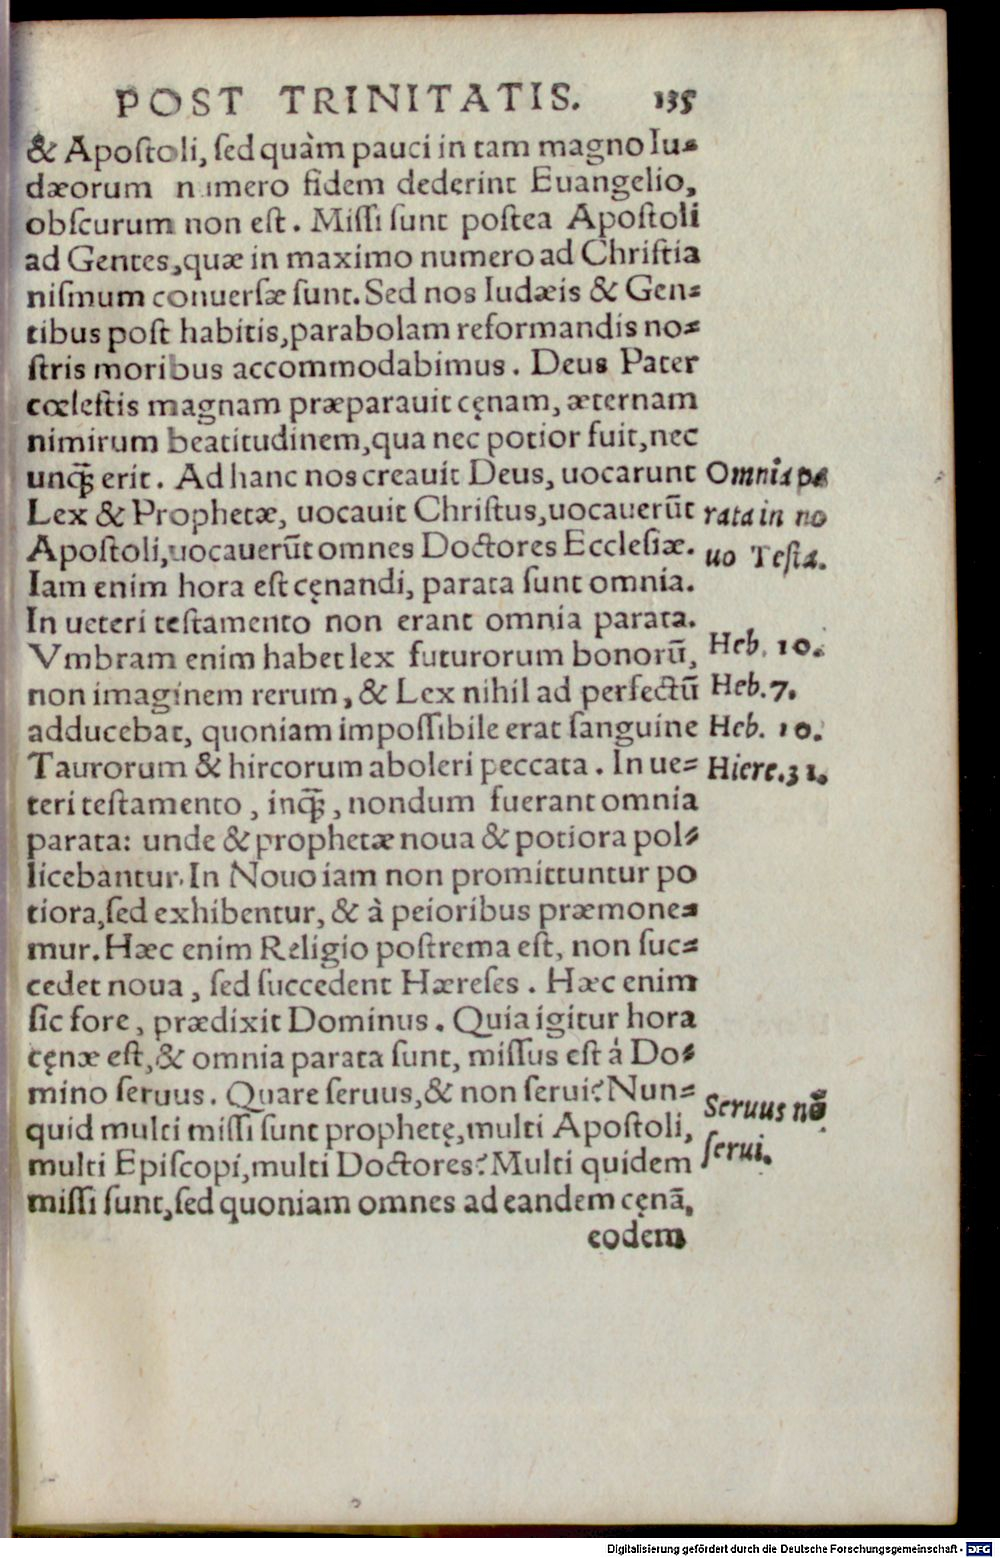 POST TRINITATIS. 135
& Apoſtoli, ſed quàm pauci in tam magno Iu-
dæorum numero fidem dederint Euangelio,
obſcurum non eſt. Miſſi ſunt poſtea Apoſtoli
ad Gentes, quæ in maximo numero ad Chriſtia
niſmum conuerſæ ſunt. Sed nos Iudæis & Gen-
tibus poſt habitis, parabolam reformandis no-
ſtris moribus accommodabimus. Deus Pater
cœleſtis magnam præparauit cęnam, æternam
nimirum beatitudinem, qua nec potior fuit, nec
unq̃ꝫ erit. Ad hanc nos creauit Deus, uocarunt
Lex & Prophetæ, uocauit Chriſtus, uocauerũt
Apoſtoli, uocauerũt omnes Doctores Eccleſiæ.
Iam enim hora eſt cęnandi, parata ſunt omnia.
In ueteri teſtamento non erant omnia parata.
Vmbram enim habet lex futurorum bonorũ,
non imaginem rerum, & Lex nihil ad perfectũ
adducebat, quoniam impoſſibile erat ſanguine
Taurorum & hircorum aboleri peccata. In ue-
teri teſtamento, inq̃ꝫ, nondum fuerant omnia
parata: unde & prophetæ noua & potiora pol-
licebantur. In Nouo iam non promittuntur po
tiora, ſed exhibentur, & à peioribus præmone-
mur. Hæc enim Religio poſtrema eſt, non ſuc-
cedet noua, ſed ſuccedent Hæreſes. Hæc enim
ſic fore, prædixit Dominus. Quia igitur hora
cęnæ eſt, & omnia parata ſunt, miſſus eſt á Do-
mino ſeruus. Quare ſeruus, & non ſerui? Nun-
quid multi miſſi ſunt prophetę, multi Apoſtoli,
multi Epiſcopi, multi Doctores? Multi quidem
miſſi ſunt, ſed quoniam omnes ad eandem cęnã,
eodem
Omnia pa
rata in no
uo Teſta.
Heb. 10.
Heb. 7.
Heb. 10.
Hiere. 31.
Seruus nõ
ſerui.
Digitalisierung gefördert durch die Deutsche Forschungsgemeinschaft - DFG